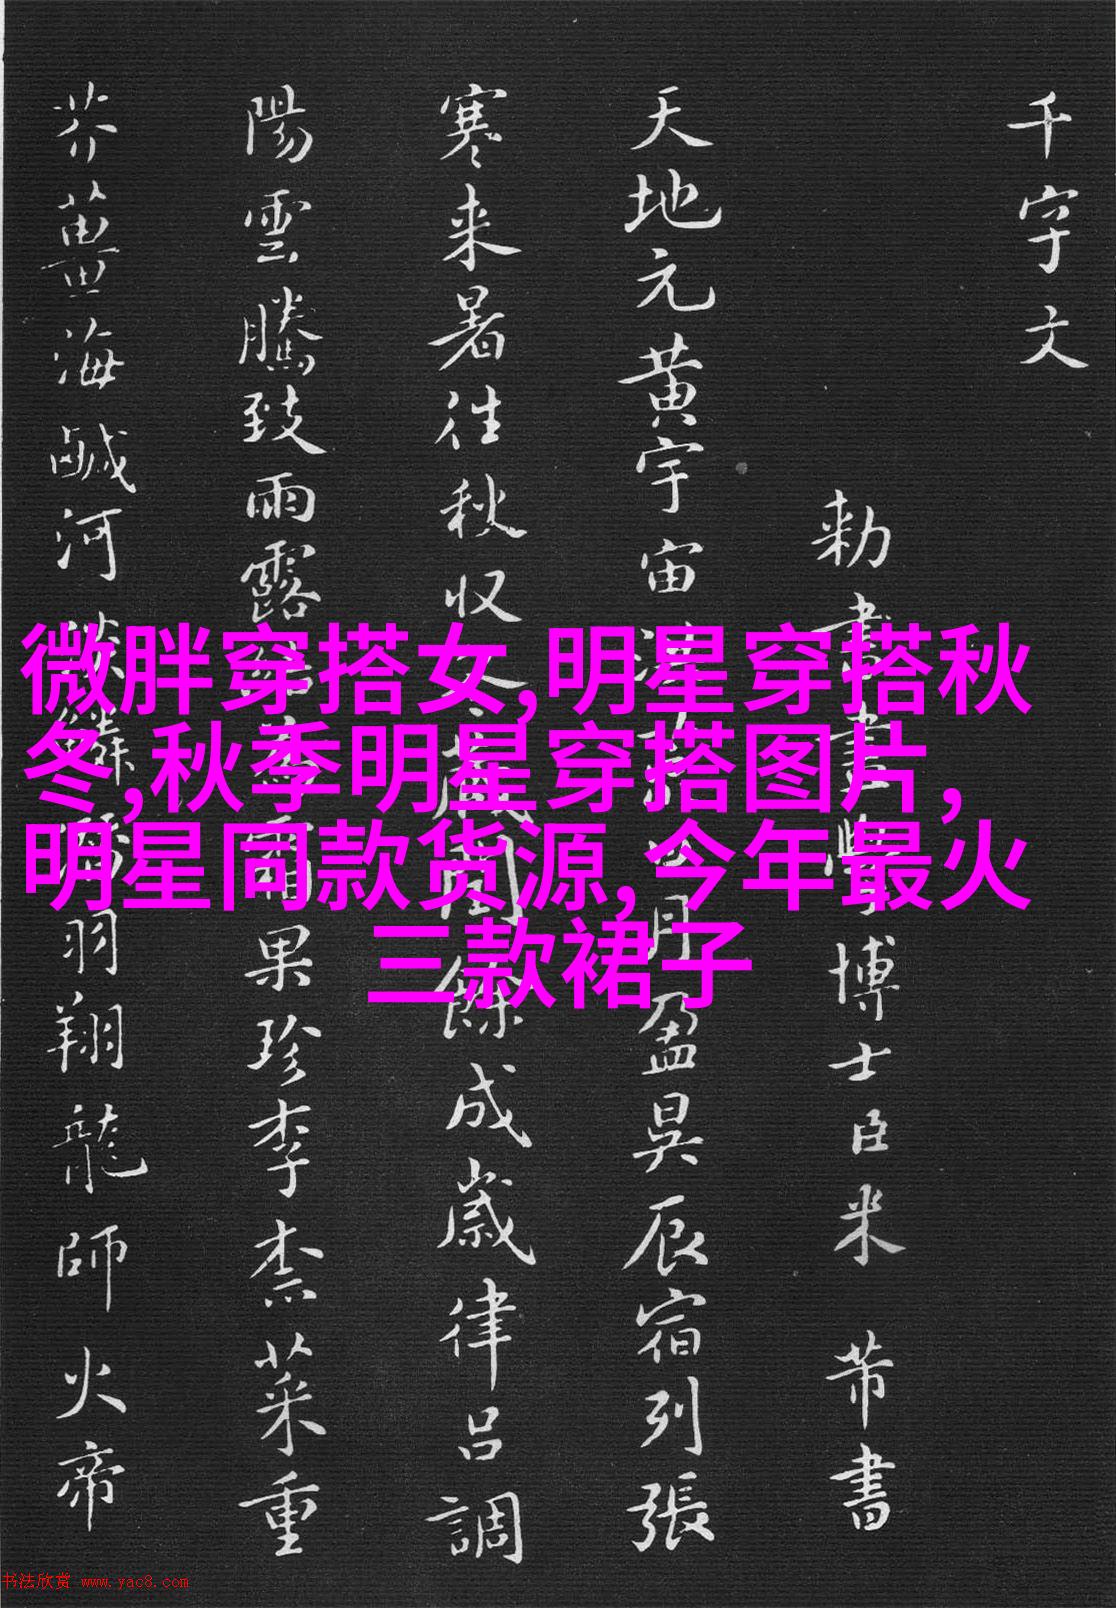 千字文
勅書畫學博士臣米 芾書
天地元黄宇宙洪月盈昃辰宿列張
寒来暑往秋収冬藏閏餘成歲律呂調
陽雲騰致雨露結為霜果珍李柰菜重
芥薑海鹹河淡鱗羽翔龍師火帝
微胖穿搭女,明星穿搭秋
冬,秋季明星穿搭图片,
明星同款货源,今年最火
三款裙子
书法欣赏 www.yac8.com